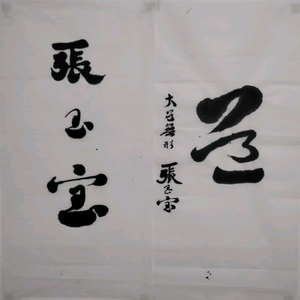 道
大道無形
張玉宝
張玉宝